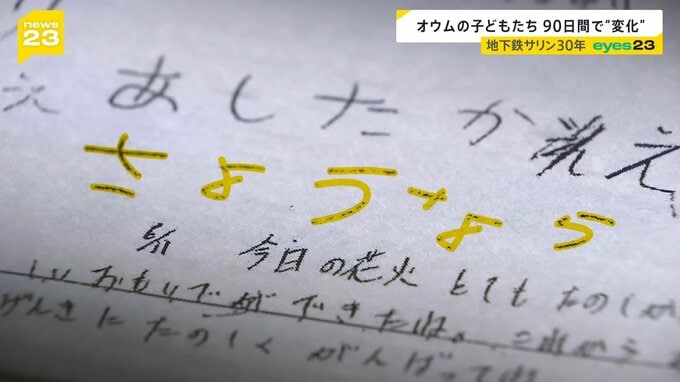 news23
オウムの子どもたち 90日間で“変化”
地下鉄サリン30年 eyes23
え あしたか え
さようなら
6/11 今日の花火 とても たのしか
しい おもいでが できたね。これから
げんきに たのしく がんばって